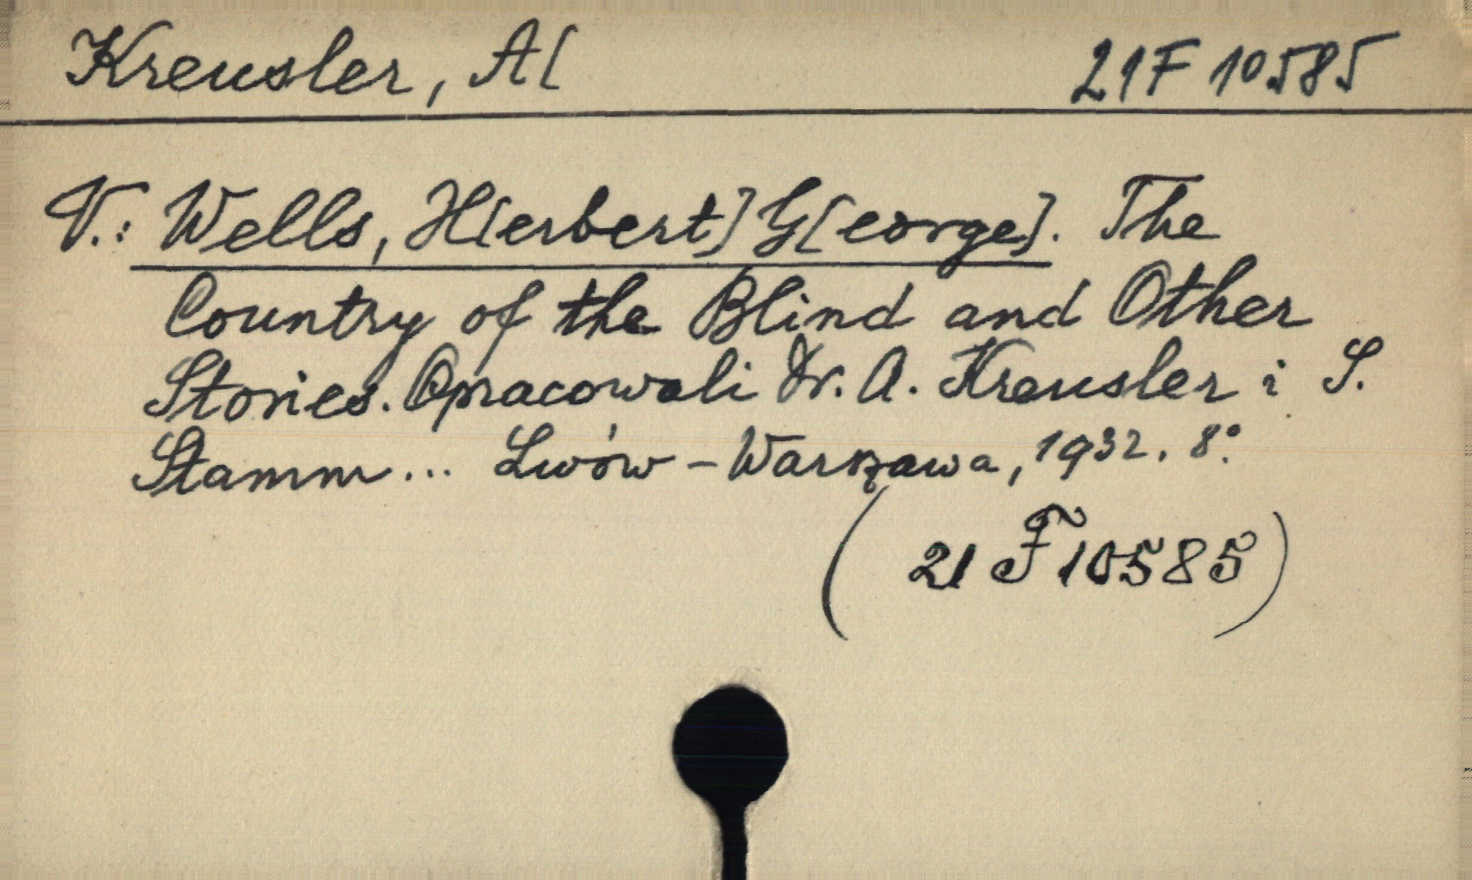 Kreusler, A[
21F 10585
V.: Wells, H[erbert] G[eorge]. The
Country of the Blind and Other
Stories. Opracowali Dr. A. Kreusler i S.
Stamm... Lwów – Warszawa, 1932. 8°.
(21 F 10585)